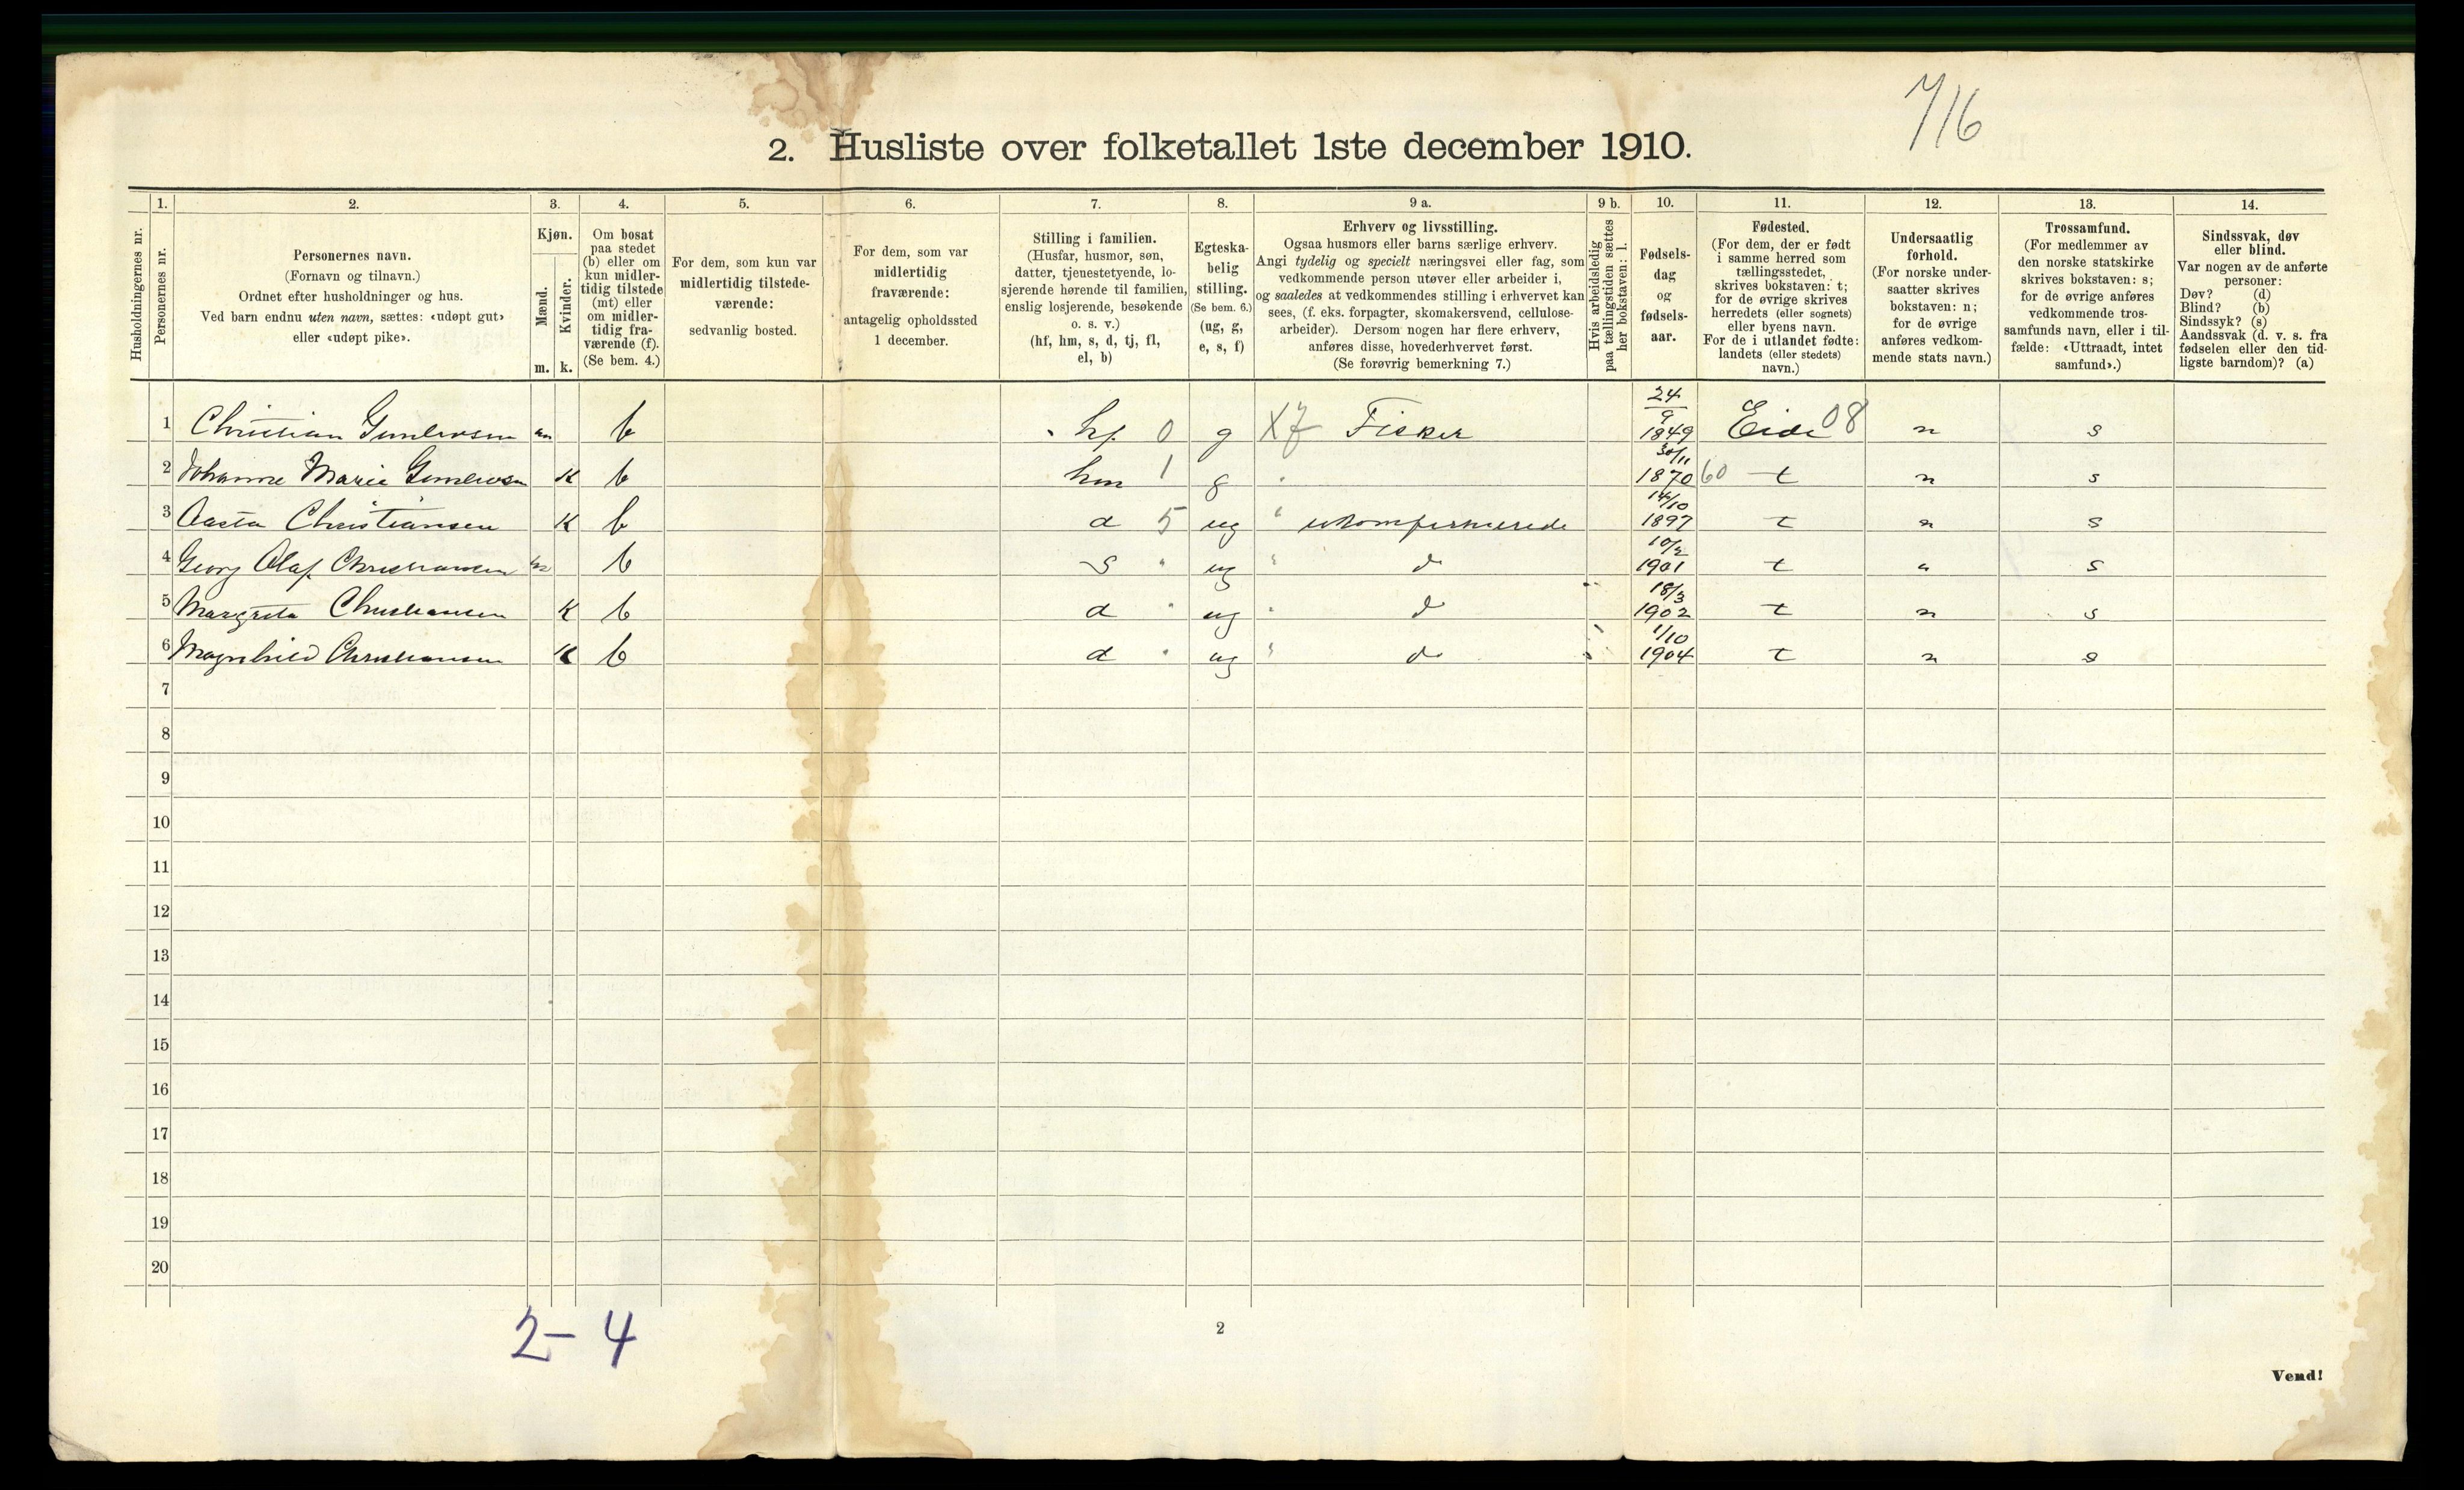 7/16
2. Husliste over folketallet 1ste december 1910.
Husholdningernes nr.
1.
Personernes nr.
2.
Personernes navn.
(Fornavn og tilnavn.)
Ordnet efter husholdninger og hus.
Ved barn endnu uten navn, sættes: «udøpt gut»
eller «udøpt pike».
3.
Kjøn.
Mænd.
Kvinder.
m. k.
4.
Om bosat
paa stedet
(b) eller om
kun midler-
tidig tilstede
(mt) eller
om midler-
tidig fra-
værende (f).
(Se bem. 4.)
5.
For dem, som kun var
midlertidig tilstede-
værende:
sedvanlig bosted.
6.
For dem, som var
midlertidig
fraværende:
antagelig opholdssted
1 december.
7.
Stilling i familien.
(Husfar, husmor, søn,
datter, tjenestetyende, lo-
sjerende hørende til familien,
enslig losjerende, besøkende
o. s. v.)
(hf, hm, s, d, tj, fl,
el, b)
8.
Egteska-
belig
stilling.
(Se bem. 6.)
(ug, g,
e, s, f)
9 a.
Erhverv og livsstilling.
Ogsaa husmors eller barns særlige erhverv.
Angi tydelig og specielt næringsvei eller fag, som
vedkommende person utøver eller arbeider i,
og saaledes at vedkommendes stilling i erhvervet kan
sees, (f. eks. forpagter, skomakersvend, cellulose-
arbeider). Dersom nogen har flere erhverv,
anføres disse, hovederhvervet først.
(Se forøvrig bemerkning 7.)
9 b.
Hvis arbeidsledig
paa tællingstiden sættes
her bokstaven: l.
10.
Fødsels-
dag
og
fødsels-
aar.
11.
Fødested.
(For dem, der er født
i samme herred som
tællingsstedet,
skrives bokstaven: t;
for de øvrige skrives
herredets (eller sognets)
eller byens navn.
For de i utlandet fødte:
landets (eller stedets)
navn.)
12.
Undersaatlig
forhold.
(For norske under-
saatter skrives
bokstaven: n;
for de øvrige
anføres vedkom-
mende stats navn.)
13.
Trossamfund.
(For medlemmer av
den norske statskirke
skrives bokstaven: s;
for de øvrige anføres
vedkommende tros-
samfunds navn, eller i til-
fælde: «Uttraadt, intet
samfund».)
14.
Sindssvak, døv
eller blind.
Var nogen av de anførte
personer:
Døv? (d)
Blind? (b)
Sindssyk? (s)
Aandssvak (d. v. s. fra
fødselen eller den tid-
ligste barndom)? (a)
1 Christian Gundersen m b hf 0 g X7 Fisker 24/9 1849 Eide 08 n s
2 Johanne Marie Gundersen K b hm 1 g 30/11 1870 60 t n s
3 Aasta Christiansen K b d 5 ug " ukomfirmerede 14/10 1897 t n s
4 Georg Olaf Christiansen m b s " ug " d 1901 t n s
5 Margreta Christiansen K b d " ug " d 18/3 1902 t n s
6 Magnhild Christiansen K b d " ug " d 1/10 1904 t n s
7
8
9
10
11
12
13
14
15
16
17
18
19
20
2 - 4
2
Vend!